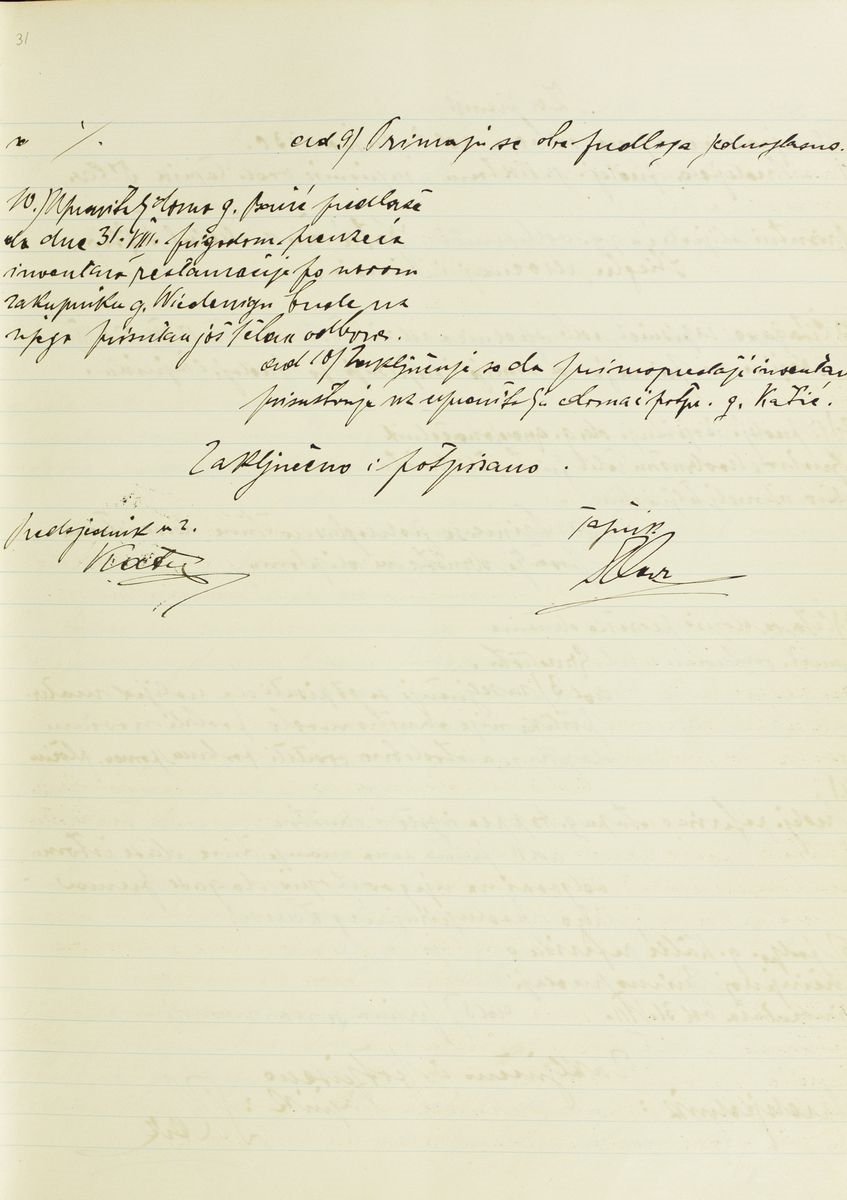 31
ad 9/ Primaju se oba predloga jednoglasno.
10./ Upravitelj doma g. predlaže
da dne 31. VIII. prigodom preuzeća
inventara restauracije po novom
zakupniku g. Wiedenigu bude uz
njega prisutan još 1 član odbora.
ad 10/ Zaključuje se da primopredaji inventara
prisustvuje uz upravitelja doma i potpr. g. Katić.
Zaključeno i potpisano.
Predsjednik Tajnik